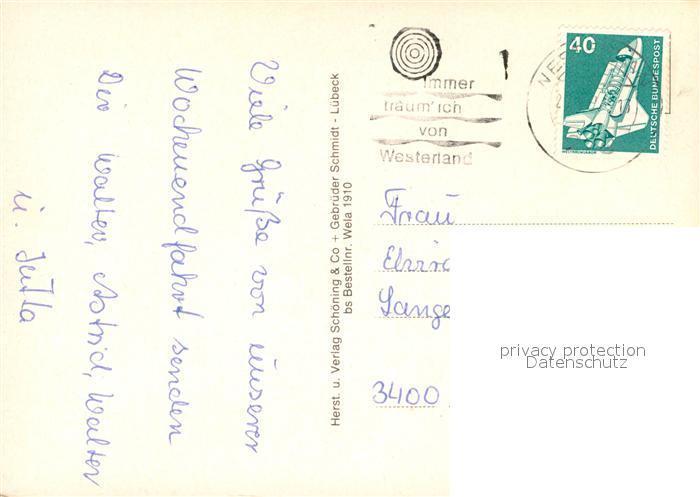 Viele Grüße von unserer
Wochenendfahrt senden
Dir Walter, Astrid, Walter
u. Jutta
Herst. u. Verlag Schöning & Co + Gebrüder Schmidt - Lübeck
bs Bestellnr. Wela 1910
immer
träum' ich
von
Westerland
40
DEUTSCHE BUNDESPOST
WELTRAUMLABOR
Frau
Lange
3400
privacy protection
Datenschutz